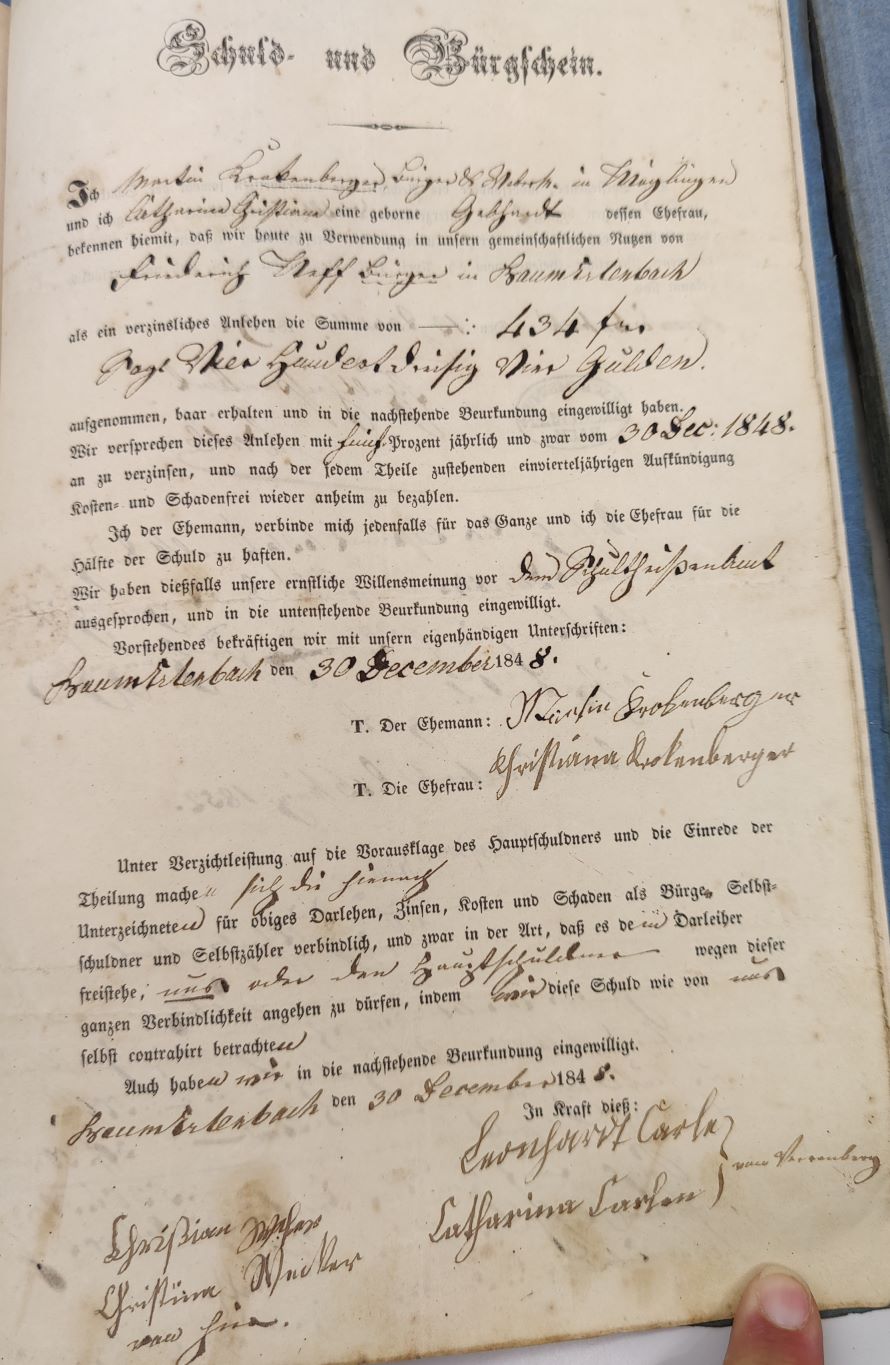 Schuld- und Bürgschein.
Ich Martin Krokenberger, Bürger & in Möglingen
und ich Catharina Christiana eine geborne Gebhardt dessen Ehefrau,
bekennen hiemit, daß wir heute zu Verwendung in unsern gemeinschaftlichen Nutzen von
Friederich Neff Bürger in Baumerlenbach
als ein verzinsliches Anlehen die Summe von —: 434 f
Sage Vier Hundert dreisig Vier Gulden.
aufgenommen, baar erhalten und in die nachstehende Beurkundung eingewilligt haben.
Wir versprechen dieses Anlehen mit fünf Prozent jährlich und zwar vom 30 Dec: 1848.
an zu verzinsen, und nach der jedem Theile zustehenden einvierteljährigen Aufkündigung
Kosten- und Schadenfrei wieder anheim zu bezahlen.
Ich der Ehemann, verbinde mich jedenfalls für das Ganze und ich die Ehefrau für die
Hälfte der Schuld zu haften.
Wir haben dießfalls unsere ernstliche Willensmeinung vor dem Schultheißenamt
ausgesprochen, und in die untenstehende Beurkundung eingewilligt.
Vorstehendes bekräftigen wir mit unsern eigenhändigen Unterschriften:
Baumerlenbach den 30 December 1848.
T. Der Ehemann: Martin Krokenberger
T. Die Ehefrau: Christiana Krokenberger
Unter Verzichtleistung auf die Vorausklage des Hauptschuldners und die Einrede der
Theilung machen sich die hienach
Unterzeichneten für obiges Darlehen, Zinsen, Kosten und Schaden als Bürgen, Selbst-
schuldner und Selbstzähler verbindlich, und zwar in der Art, daß es dem Darleiher
freistehe, uns oder den Hauptschuldner wegen dieser
ganzen Verbindlichkeit angehen zu dürfen, indem wir diese Schuld wie von uns
selbst contrahirt betrachten
Auch haben wir in die nachstehende Beurkundung eingewilligt.
Baumerlenbach den 30 December 1848.
In Kraft dieß:
Leonhardt Carle
Catharina Carlen } vom Verrenberg
Christian
Christina
von hier.